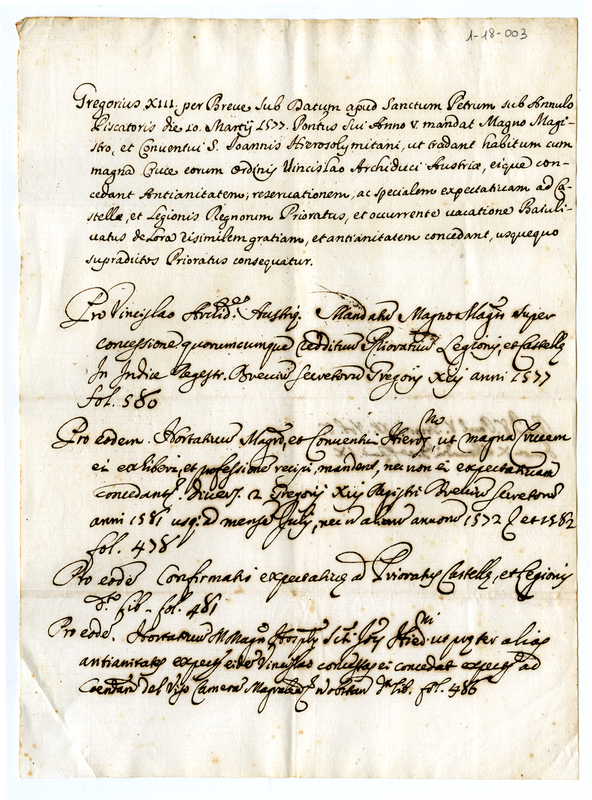 1-18-003
Gregorius XIII. per Breve sub Datum apud Sanctum Petrum sub Annulo
Piscatoris die 10. Martij 1577. Pontus sui Anno V. mandat Magno Magi-
stro, et Conventui S. Joannis Hierosolymitani, ut tradant habitum cum
magna Cruce eorum Ordinis Vincislao Archiduci Austriæ, eique con-
cedant Antianitatem, reservationem, ac specialem expectativam ad Ca-
stellæ, et Legionis Regnorum Prioratus, et occurrente vacatione Baiuli-
vatus de Lora Visimilem gratiam, et antianitatem concedant, usquequo
supradictos Prioratus consequatur.
Pro Vincislao Archid. Austrię. Mandatū Magno Magrō super
concessione quorumcumque reddituū Prioratuū Legionis, et Castellę
In Indice Regestr. Breviū Secretorū Gregorij XIIJ anni 1577
fol. 580
Pro eodem. Hortatur Magrō, et Conventui Hieros.no, ut magna Crucem
ei exhiberi, et professione recipi, mandent, nec non ei expectativam
concedant. Divers. 2 Gregorij XIIJ Registri Breviū Secretorū
anni 1581 usq. ad mense Julij, nec n aliorū annorū 1572 et 1582
fol. 478
Pro eodē Confirmatio expectativę ad Prioratus Castellę, et Legionis
dto. lib. fol. 481
Pro eodē. Hortatur M Magro Hosplis Sti. Jois Hierni. ut propter alias
antianitates eidē Vincislao concessas ei concedat ad
del Viso Camera dto lib. fol. 486